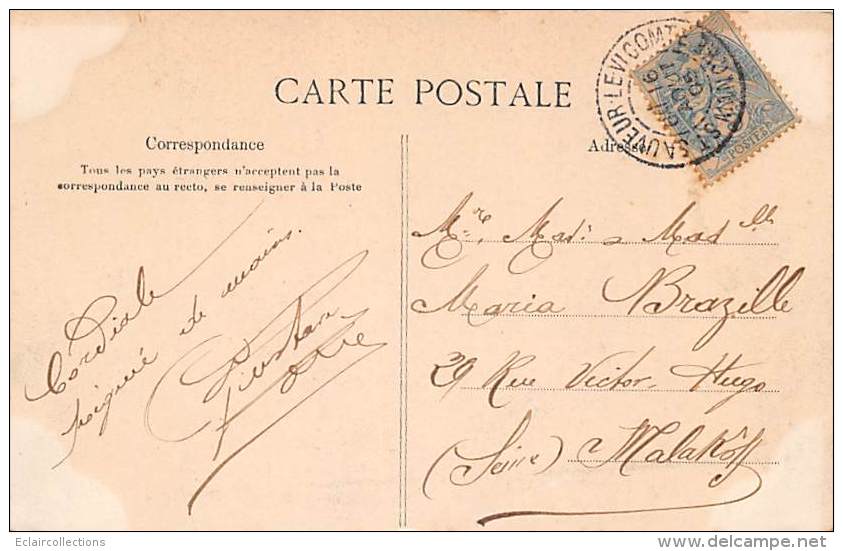 CARTE POSTALE
Correspondance
Tous les pays étrangers n'acceptent pas la
correspondance au recto, se renseigner à la Poste
Adresse
ST SAUVEUR-LE-VICOMTE
MANCHE
16
AOUT
05
POSTES
Cordiale
poignée de mains.
Mr, Mad: & Mad elle
Maria Brazille
29 Rue Victor-Hugo
(Seine) Malakoff
Eclaircollections
delcampe.net